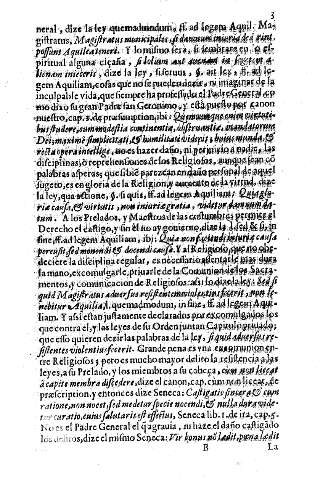 3
neral, dize la ley quemadmodum, ff. ad legem Aquil. Ma-
gistratus, Magistratus municipales, si damnum iniuria de-
possunt Aquilea teneri. Y lo mismo será, si sembrare en lo es-
piritual alguna cizaña, si lolium aut avenam in segetem a-
lienam inieceris, dize la ley, si servus, §. an ley, ff. ad le-
gem Aquiliam, cosas que no se puede dezir, ni imaginar de la
inculpable vida, que siempre ha professado el Padre General co-
mo dixo su gran Padre san Geronimo, y está puesto por canon
nuestro, cap. 5. de præsumption, ibi: Quumque enim virtuti-
bus studere, cum modestia continentia, observantia, mandatorum
Dei, maxime simplicitati, & humilitati videris, huius mundi, &
recta opera intellige, no es hazer daño, ni perjuizio a nadie, las
disciplinas, o reprehensiones de los Religiosos, aunque sean co
palabras asperas; que si bié parezcan en daño personal de aquel
sugeto, es en gloria de la Religion, y aumento de la virtud, dize
la ley, qua actione, §. si quis, ff. ad legem Aquiliam: Quia glo-
riæ causa, & virtutis, non iniuriæ gratia, videtur damnum da-
tum. A los Prelados, y Maestros de las costumbres permite el
Derecho el castigo, y sin él no ay govierno, dize la
fine, ff. ad legem Aquiliam, ibi: Quia non
percussit sed monendi & docendi causa. Y al Religioso, que no obe-
deciere la disciplina regular, es necessario assentarle mas dura
la mano, excomulgarle, privarle de la Comunion de los Sacra-
mentos, y comunicacion de Religiosos: assi lo dize la ley: Sed si
quid Magistratus adversus resistentem violentius fecerit, non te-
nebitur Aquilia, l. quemadmodum, in fine, ff. ad legem Aqui-
liam. Y assi están justamente declarados por excomulgados los
que contra el, y los leyes de su Orden juntan Capitulo privado,
que esso quieren dezir las palabras de la ley, si quid adversus re-
sistentes violentius fecerit. Grande pena es vna excomunion en-
tre Religiosos; pero es mucho mayor delito la resistencia a las
leyes, a su Prelado, y los miembros a su cabeça, cum non liceat
à capite membra discedere, dize el canon, cap. cum non liceat, de
præscription, y entonces dize Seneca: Castigatio sincera & cum
ratione, non nocet, sed medetur specie nocendi, & nulla dura vide-
tur curatio, cuius salutaris est effectus, Seneca lib. 1. de ira, cap. 5.
No es el Padre General el q̃ agravia, ni haze el daño castigãdo
los delitos, dize el mismo Seneca: Vir bonus nõ lædit, pœna lædit
B La